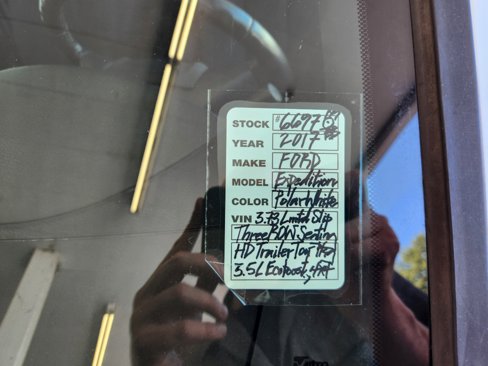 STOCK #6697
YEAR 2017
MAKE FORD
MODEL Expedition
COLOR Polar White
VIN 3.73 Lmtd Slip
Three ROW Seating
HD Trailer Tow
3.5L Ecoboost